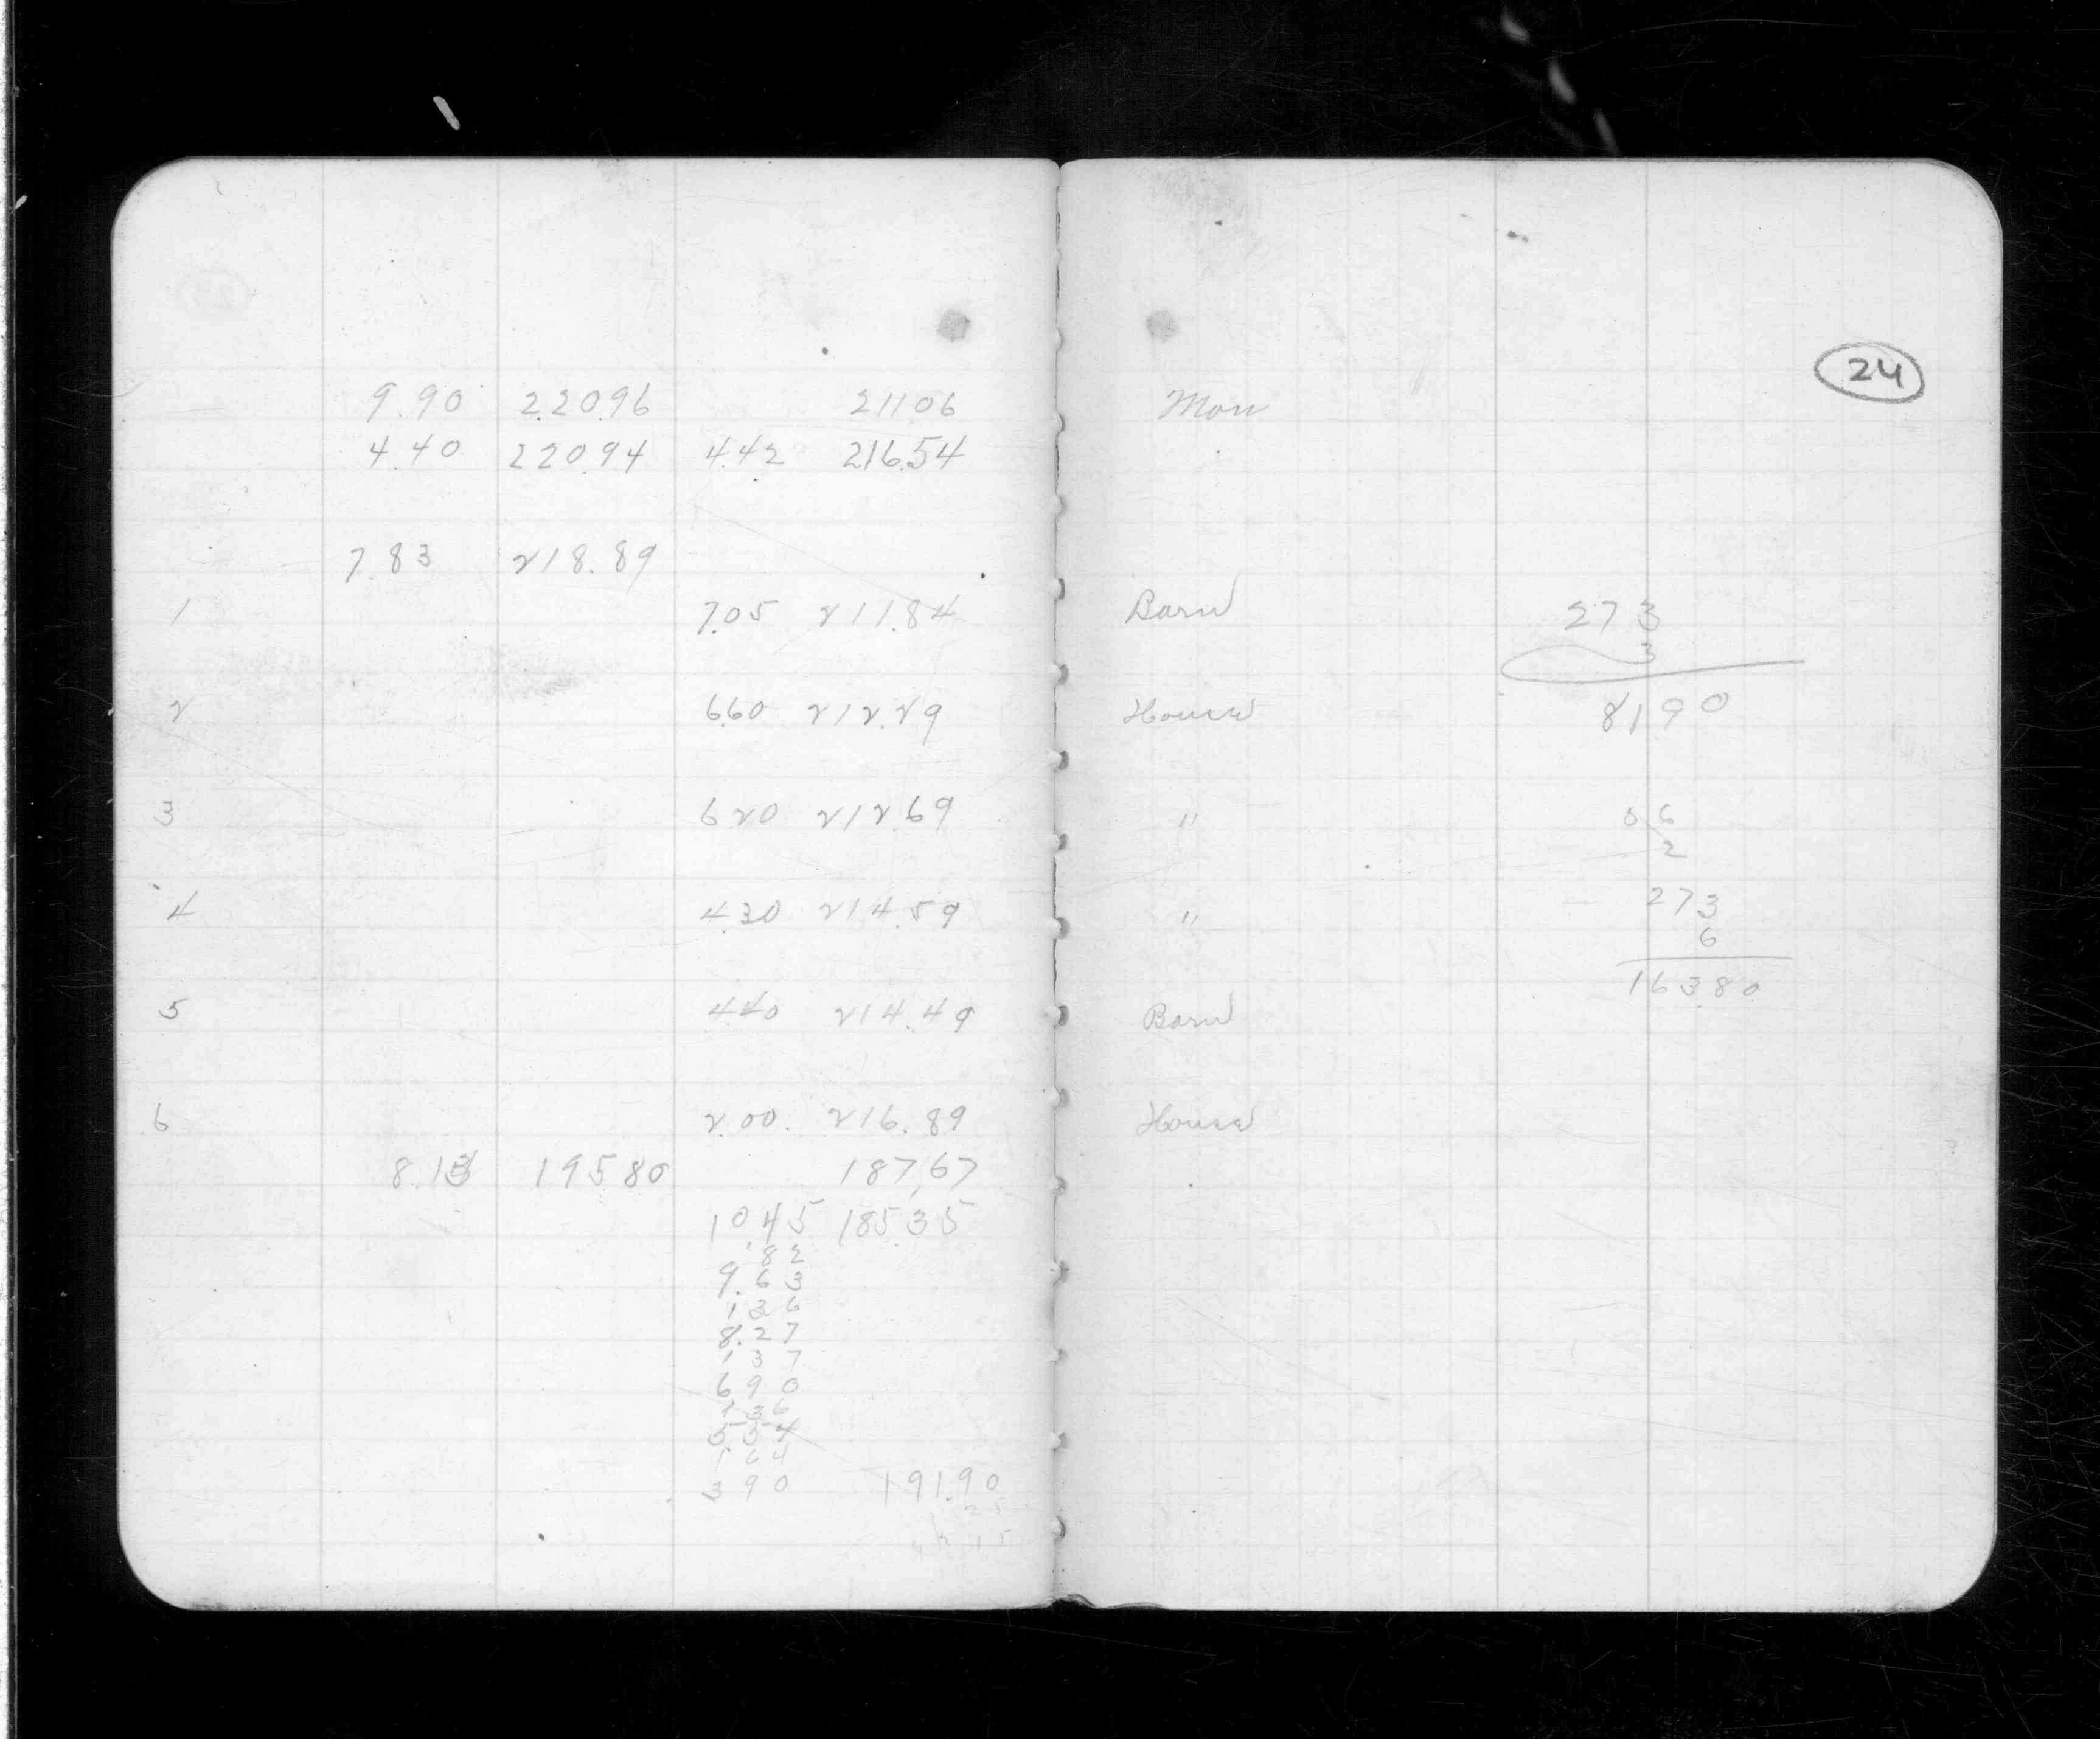 9.90 220.96 211.06
4.40 220.94 4.42 216.54
7.83 218.89
1 7.05 211.84
2 6.60 212.29
3 6 20 212.69
4 4.30 214.59
5 4.40 214.49
6 2.00. 216.89
8.13 195 80 187.67
10.45 185.35
.82
9.63
1 36
8.27
1 3 7
6 9 0
1 36
1 64
3 9 0 191.90
25
24
Mon
Barn 273
3
House 8190
"
2
" 273
6
163.80
Barn
House